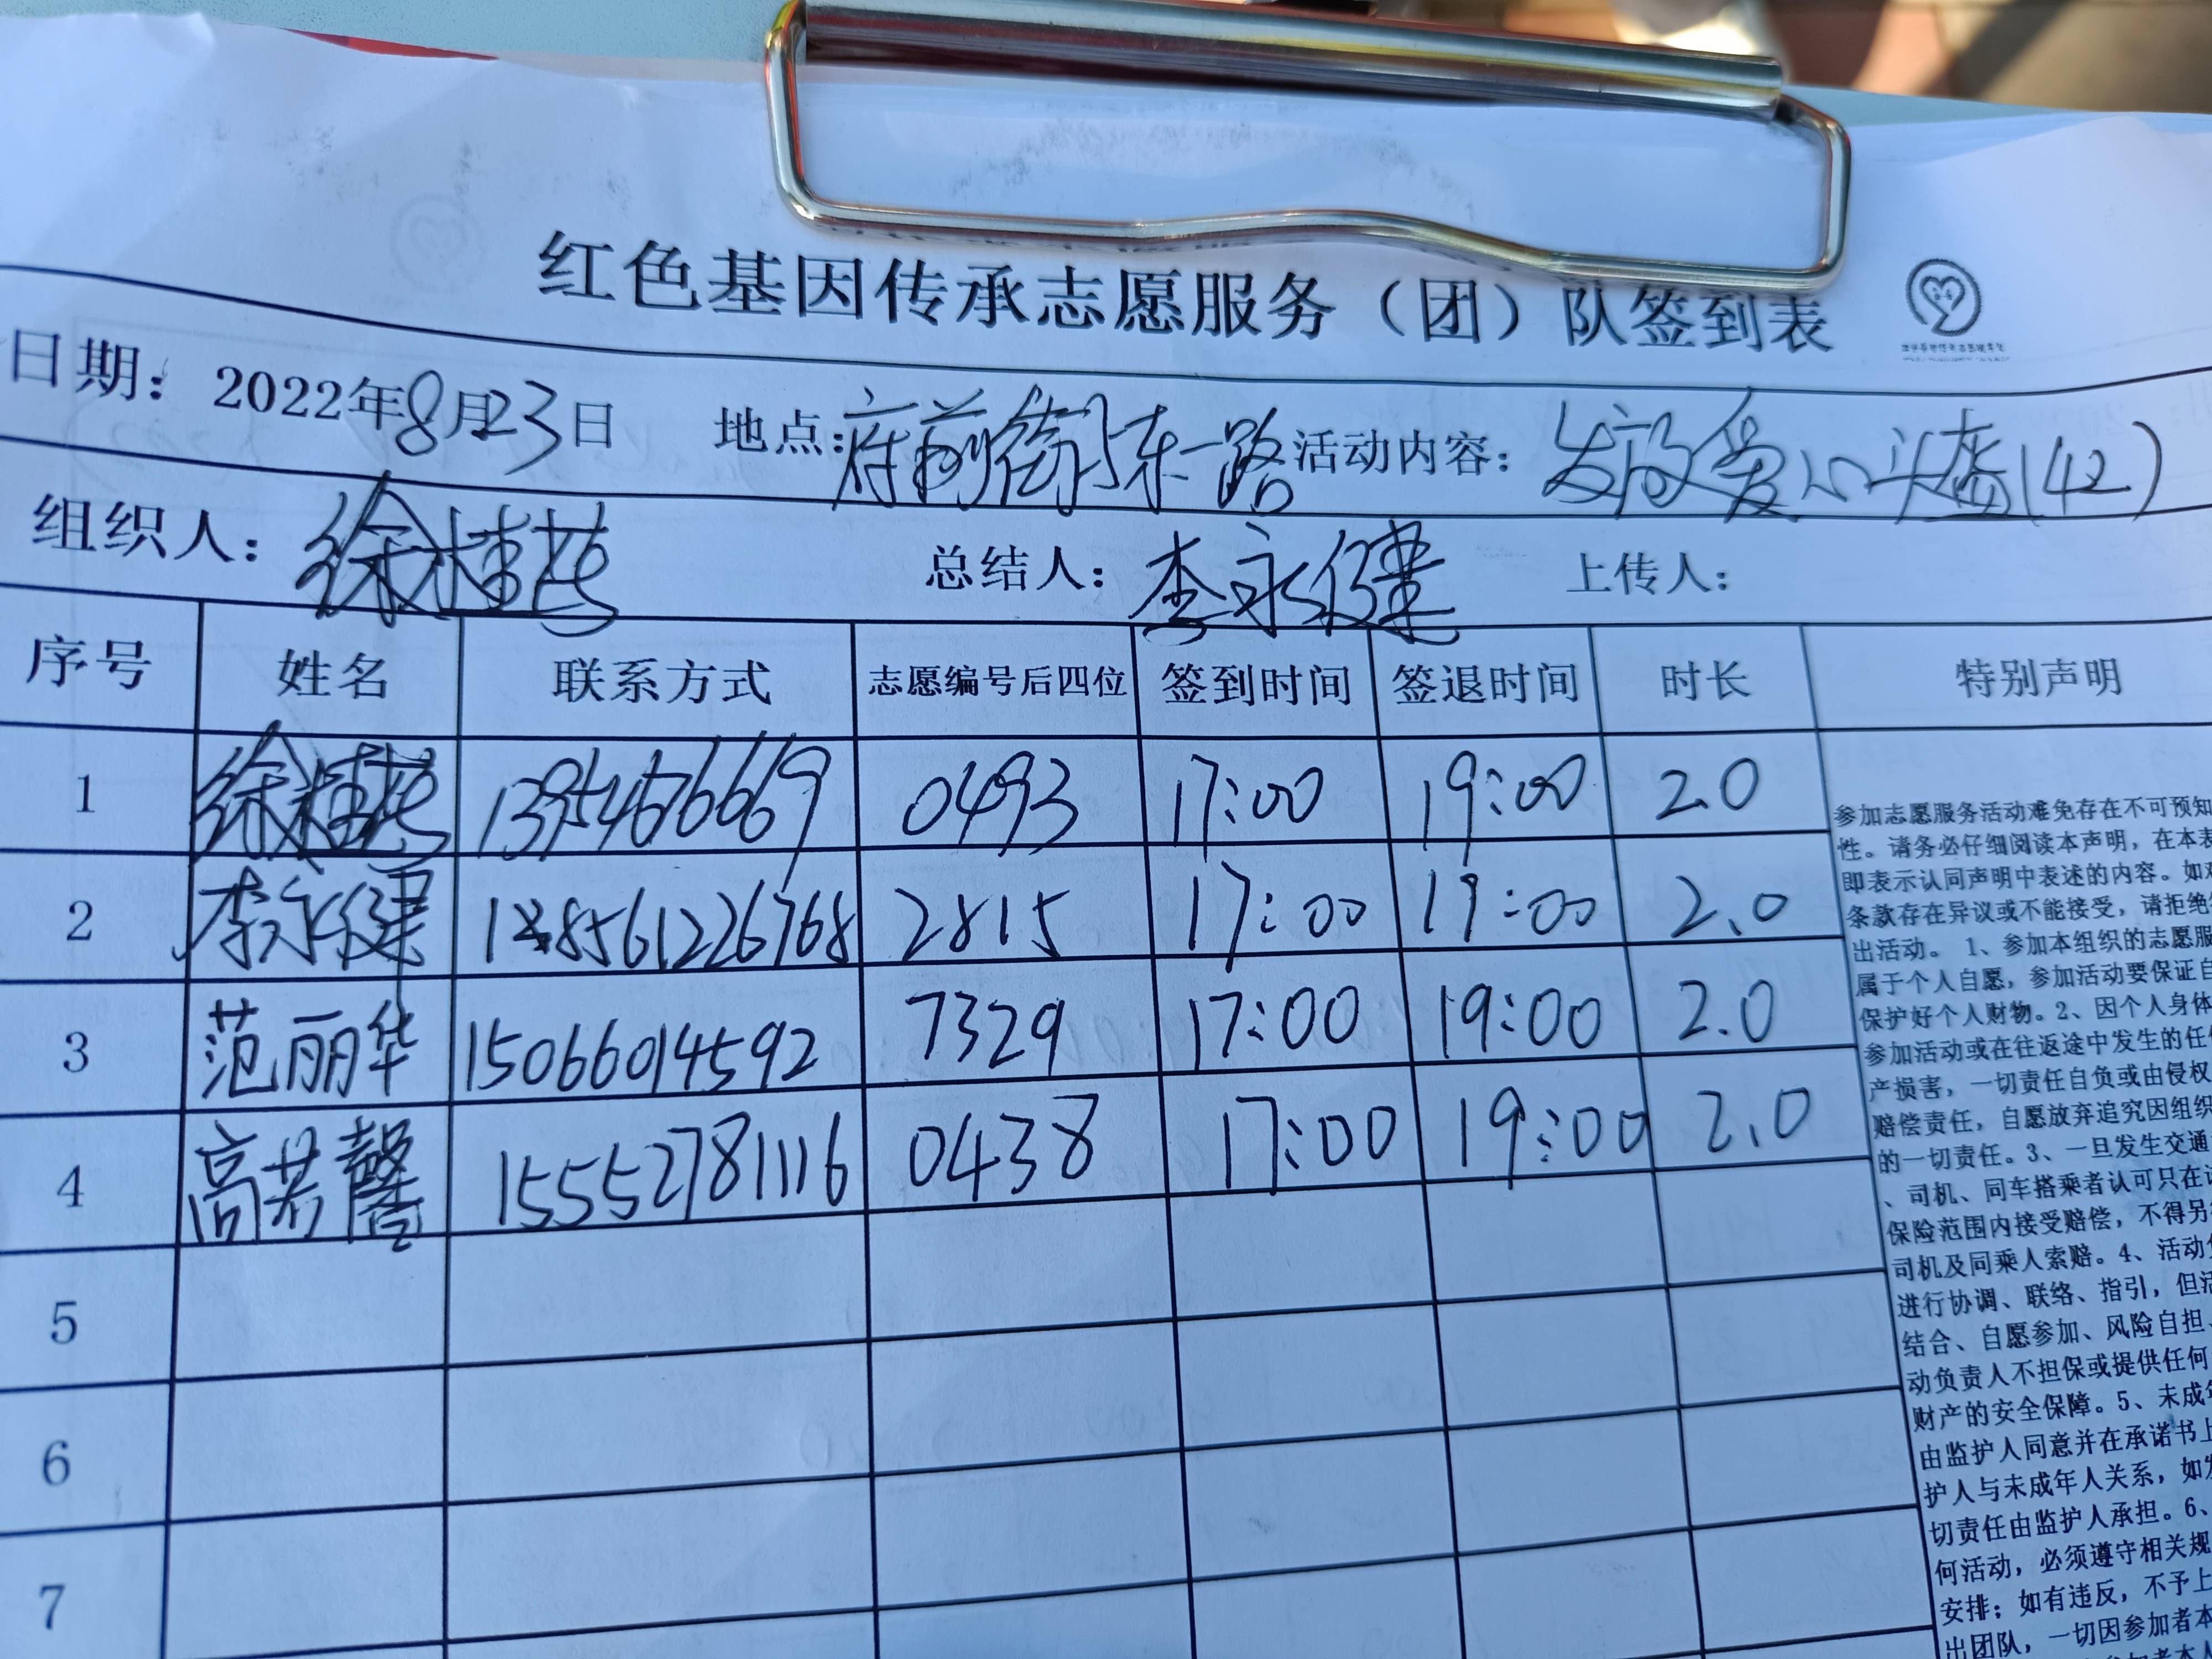 红色基因传承志愿服务（团）队签到表
日期：2022年8月23日 地点：府前街东一路 活动内容：发放爱心头盔(42)
组织人：徐桂燕 总结人：李永健 上传人：
序号 姓名 联系方式 志愿编号后四位 签到时间 签退时间 时长 特别声明
1 徐桂燕 13954676669 0493 17:00 19:00 2.0
2 李永健 18561226768 2815 17:00 19:00 2.0
3 范丽华 15066014592 7329 17:00 19:00 2.0
4 高若馨 15552781116 0438 17:00 19:00 2.0
5
6
7
参加志愿服务活动难免存在不可预知
性。请务必仔细阅读本声明，在本表
即表示认同声明中表述的内容。如对
条款存在异议或不能接受，请拒绝
出活动。 1、参加本组织的志愿服
属于个人自愿，参加活动要保证自
保护好个人财物。2、因个人身体
参加活动或在往返途中发生的任
产损害，一切责任自负或由侵权
赔偿责任，自愿放弃追究因组织
的一切责任。3、一旦发生交通
、司机、同车搭乘者认可只在
保险范围内接受赔偿，不得另
司机及同乘人索赔。4、活动
进行协调、联络、指引，但活
结合、自愿参加、风险自担、
动负责人不担保或提供任何
财产的安全保障。5、未成年
由监护人同意并在承诺书上
护人与未成年人关系，如发
切责任由监护人承担。6、
何活动，必须遵守相关规
安排；如有违反，不予上
出团队，一切因参加者本